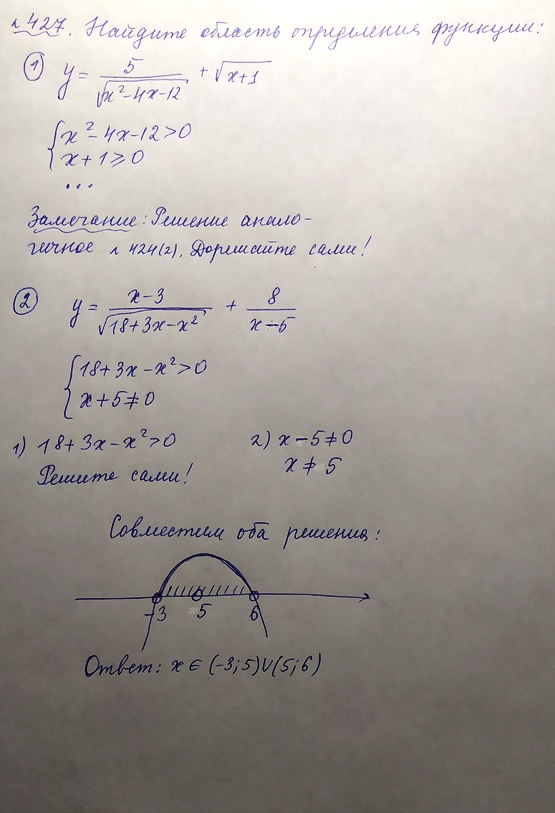 №427. Найдите область определения функции:
① y = 5/√(x²-4x-12) + √(x+1)
{x²-4x-12>0
x+1⩾0
...
Замечание: Решение анало-
гичное №424(2). Дорешайте сами!
② y = (x-3)/√(18+3x-x²) + 8/(x-5)
{18+3x-x²>0
x+5≠0
1) 18+3x-x²>0 2) x-5≠0
Решите сами! x≠5
Совместим оба решения:
-3 5 6
Ответ: x∈(-3;5)∪(5;6)